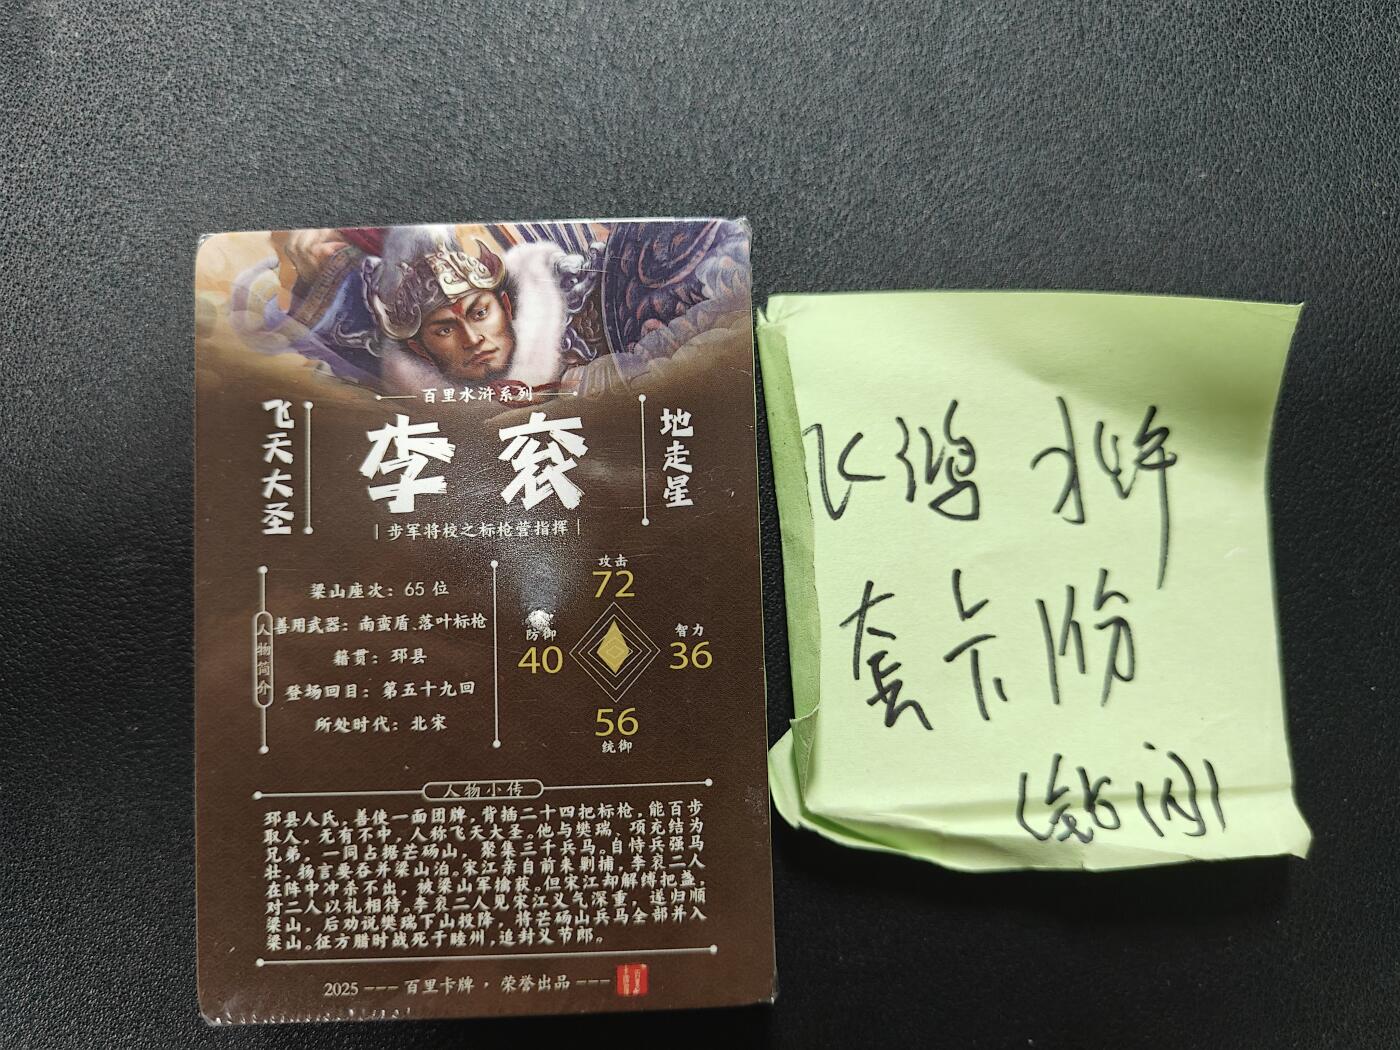 百里水浒系列
飞天大圣
李衮
地走星
步军将校之标枪营指挥
人物简介
梁山座次：65 位
善用武器：南蛮盾、落叶标枪
籍贯：邳县
登场回目：第五十九回
所处时代：北宋
攻击
72
防御
40
智力
36
56
统御
人物小传
邳县人氏，善使一面团牌，背插二十四把标枪，能百步
取人，无有不中，人称飞天大圣。他与樊瑞、项充结为
兄弟，一同占据芒砀山，聚集三千兵马。自恃兵强马
壮，扬言要吞并梁山泊。宋江亲自前来剿捕，李衮二人
在阵中冲杀不出，被梁山军擒获。但宋江却解缚把盏，
对二人以礼相待。李衮二人见宋江义气深重，遂归顺
梁山，后劝说樊瑞下山投降，将芒砀山兵马全部并入
梁山。征方腊时战死于睦州，追封义节郎。
2025 --- 百里卡牌 · 荣誉出品 ---
飞鸿 水浒
套卡 1份
(钻闪)